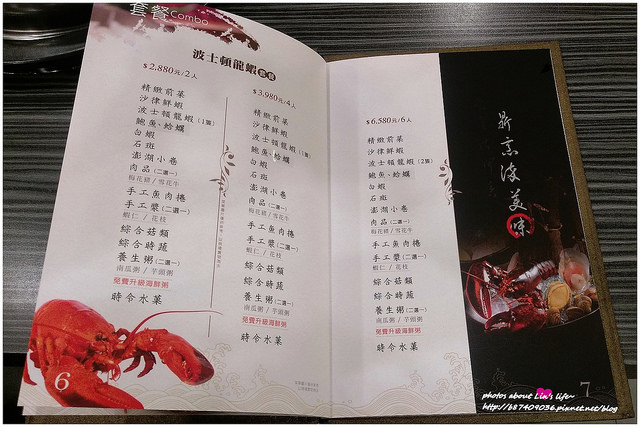 套餐Combo
波士頓龍蝦套餐
$2,880元/2人
精緻前菜
沙律鮮蝦
波士頓龍蝦(1隻)
鮑魚、蛤蠣
白蝦
石斑
澎湖小卷
肉品(二選一)
梅花豬/雪花牛
手工魚肉捲
手工漿(二選一)
蝦仁/花枝
綜合菇類
綜合時蔬
養生粥(二選一)
南瓜粥/芋頭粥
免費升級海鮮粥
時令水菓
$3,980元/4人
精緻前菜
沙律鮮蝦
波士頓龍蝦(1隻)
鮑魚、蛤蠣
白蝦
石斑
澎湖小卷
肉品(二選一)
梅花豬/雪花牛
手工魚肉捲
手工漿(二選一)
蝦仁/花枝
綜合菇類
綜合時蔬
養生粥(二選一)
南瓜粥/芋頭粥
免費升級海鮮粥
時令水菓
6
$6,580元/6人
精緻前菜
沙律鮮蝦
波士頓龍蝦(2隻)
鮑魚、蛤蠣
白蝦
石斑
澎湖小卷
肉品(二選一)
梅花豬/雪花牛
手工魚肉捲
手工漿(二選一)
蝦仁/花枝
綜合菇類
綜合時蔬
養生粥(二選一)
南瓜粥/芋頭粥
免費升級海鮮粥
時令水菓
鼎烹海美味
7
photos about Lin's life~
http://b87409036.pixnet.net/blog